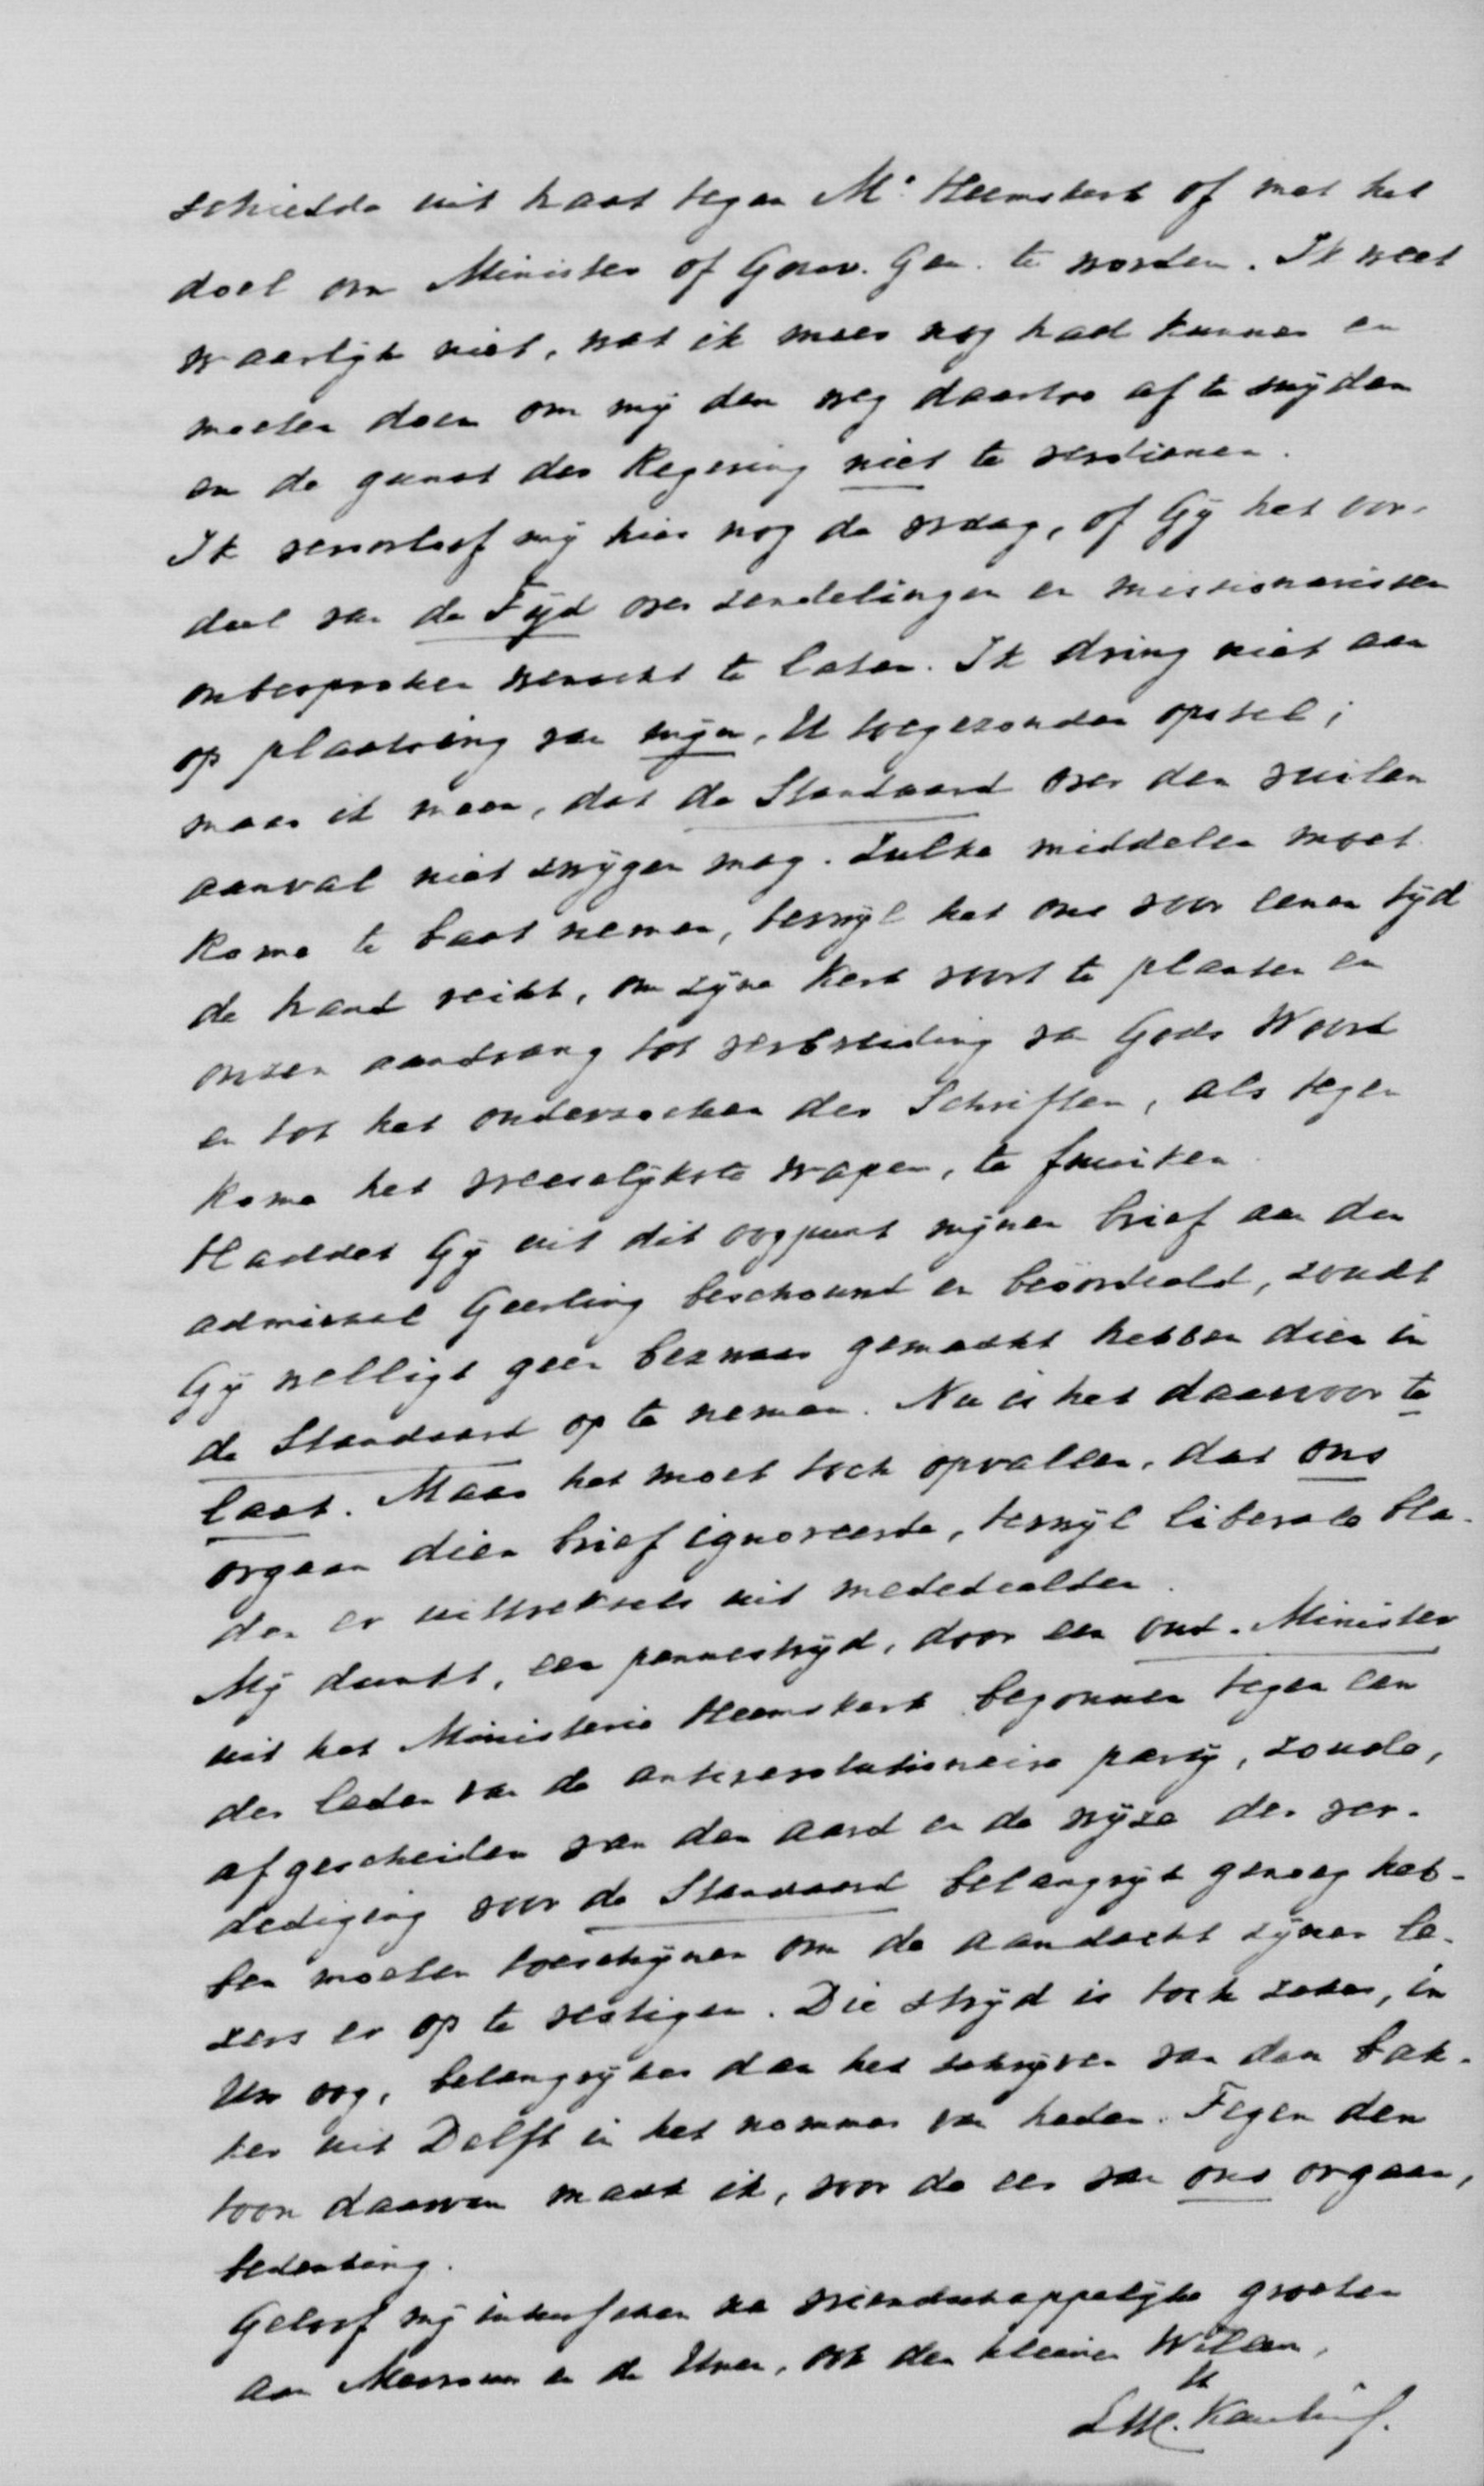 schiedde uit haat tegen Mr. Heemskerk of met het
doel om Minister of Gouv. Gen. te worden. Ik weet
waarlijk niet, wat ik meer nog had kunnen en
moeten doen om mij den weg daartoe af te snijden
en de gunst der Regering niet te verdienen.
Ik veroorloof mij hier nog de vraag, of Gij het oor-
deel van de Tijd over zendelingen en missionarissen
onbesproken wenscht te laten. Ik dring niet aan
op plaatsing van mijn, U toegezonden opstel;
maar ik meen, dat de Standaard over den vuilen
aanval niet zwijgen mag. Zulke middelen moet
Rome te baat nemen, terwijl het ons voor eenen tijd
de hand reikt, om zijne Kerk voort te planten en
onzen aandrang tot verbreiding van Gods Woord
en tot het onderzoeken der Schriften, als tegen
Rome het vreeselijkste wapen, te fnuiken.
Haddet Gij uit dit oogpunt mijnen brief aan den
admiraal Geerling beschouwd en beöordeeld, zoudt
Gij welligt geen bezwaar gemaakt hebben dien in
de Standaard op te nemen. Nu is het daarvoor te
laat. Maar het moet toch opvallen, dat ons
orgaan dien brief ignoreerde, terwijl liberale bla-
den er uittreksels uit mededeelden.
Mij dunkt, een pennestrijd, door een oud-Minister
uit het Ministerie Heemskerk begonnen tegen een
der leden van de antirevolutionaire partij, zoude,
afgescheiden van den aard en de wijze der ver-
dediging voor de Standaard belangrijk genoeg heb-
ben moeten toeschijnen om de aandacht zijner le-
zers er op te vestigen. Die strijd is toch zeker, in
Uw oog, belangrijker dan het schrijven van den bak-
ker uit Delft in het nommer van heden. Tegen den
toon daarvan maak ik, voor de eer van ons orgaan,
bedenking.
Geloof mij intusschen na vriendschappelijke groeten
aan Mevrouw en de Uwen, ook den kleinen Willem,